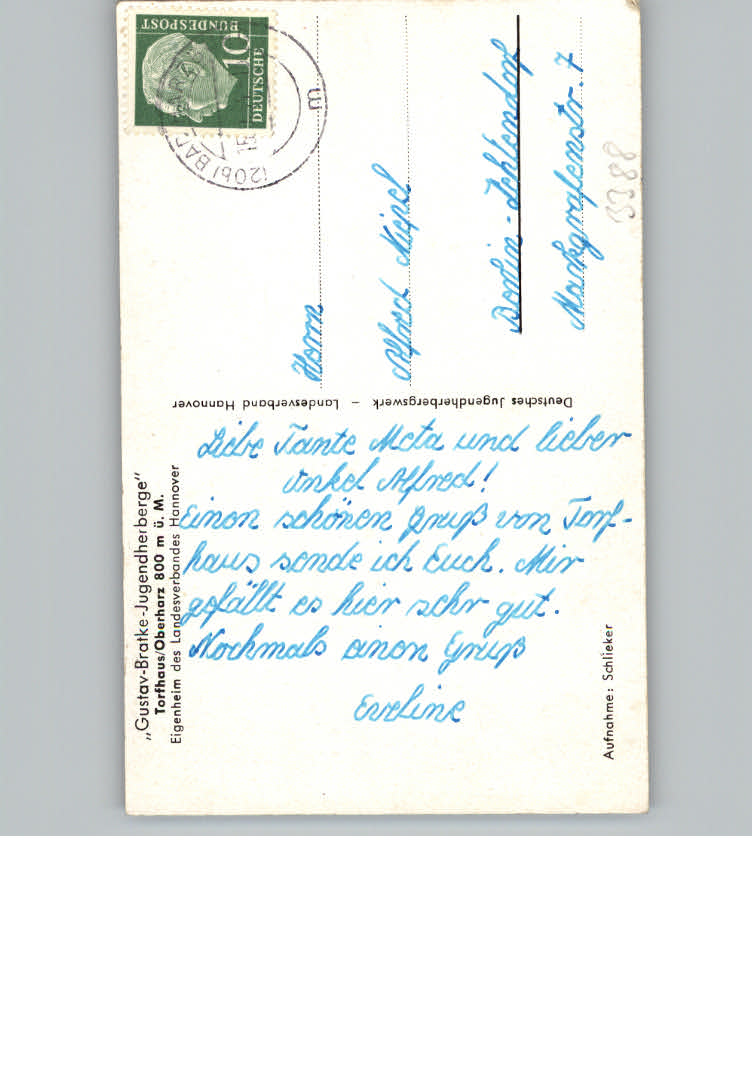 „Gustav-Bratke-Jugendherberge"
Torfhaus/Oberharz 800 m ü. M.
Eigenheim des Landesverbandes Hannover
Liebe Tante Meta und lieber
Onkel Alfred!
Einen schönen Gruß von Torf-
haus sende ich Euch. Mir
gefällt es hier sehr gut.
Nochmals einen Gruß
Eveline
Aufnahme: Schlieker
Deutsches Jugendherbergswerk – Landesverband Hannover
DEUTSCHE
BUNDESPOST
10
(20b) BAD
15.
m
Herrn
Alfred
Berlin-Zehlendorf
Markgrafenstr. 7
3388